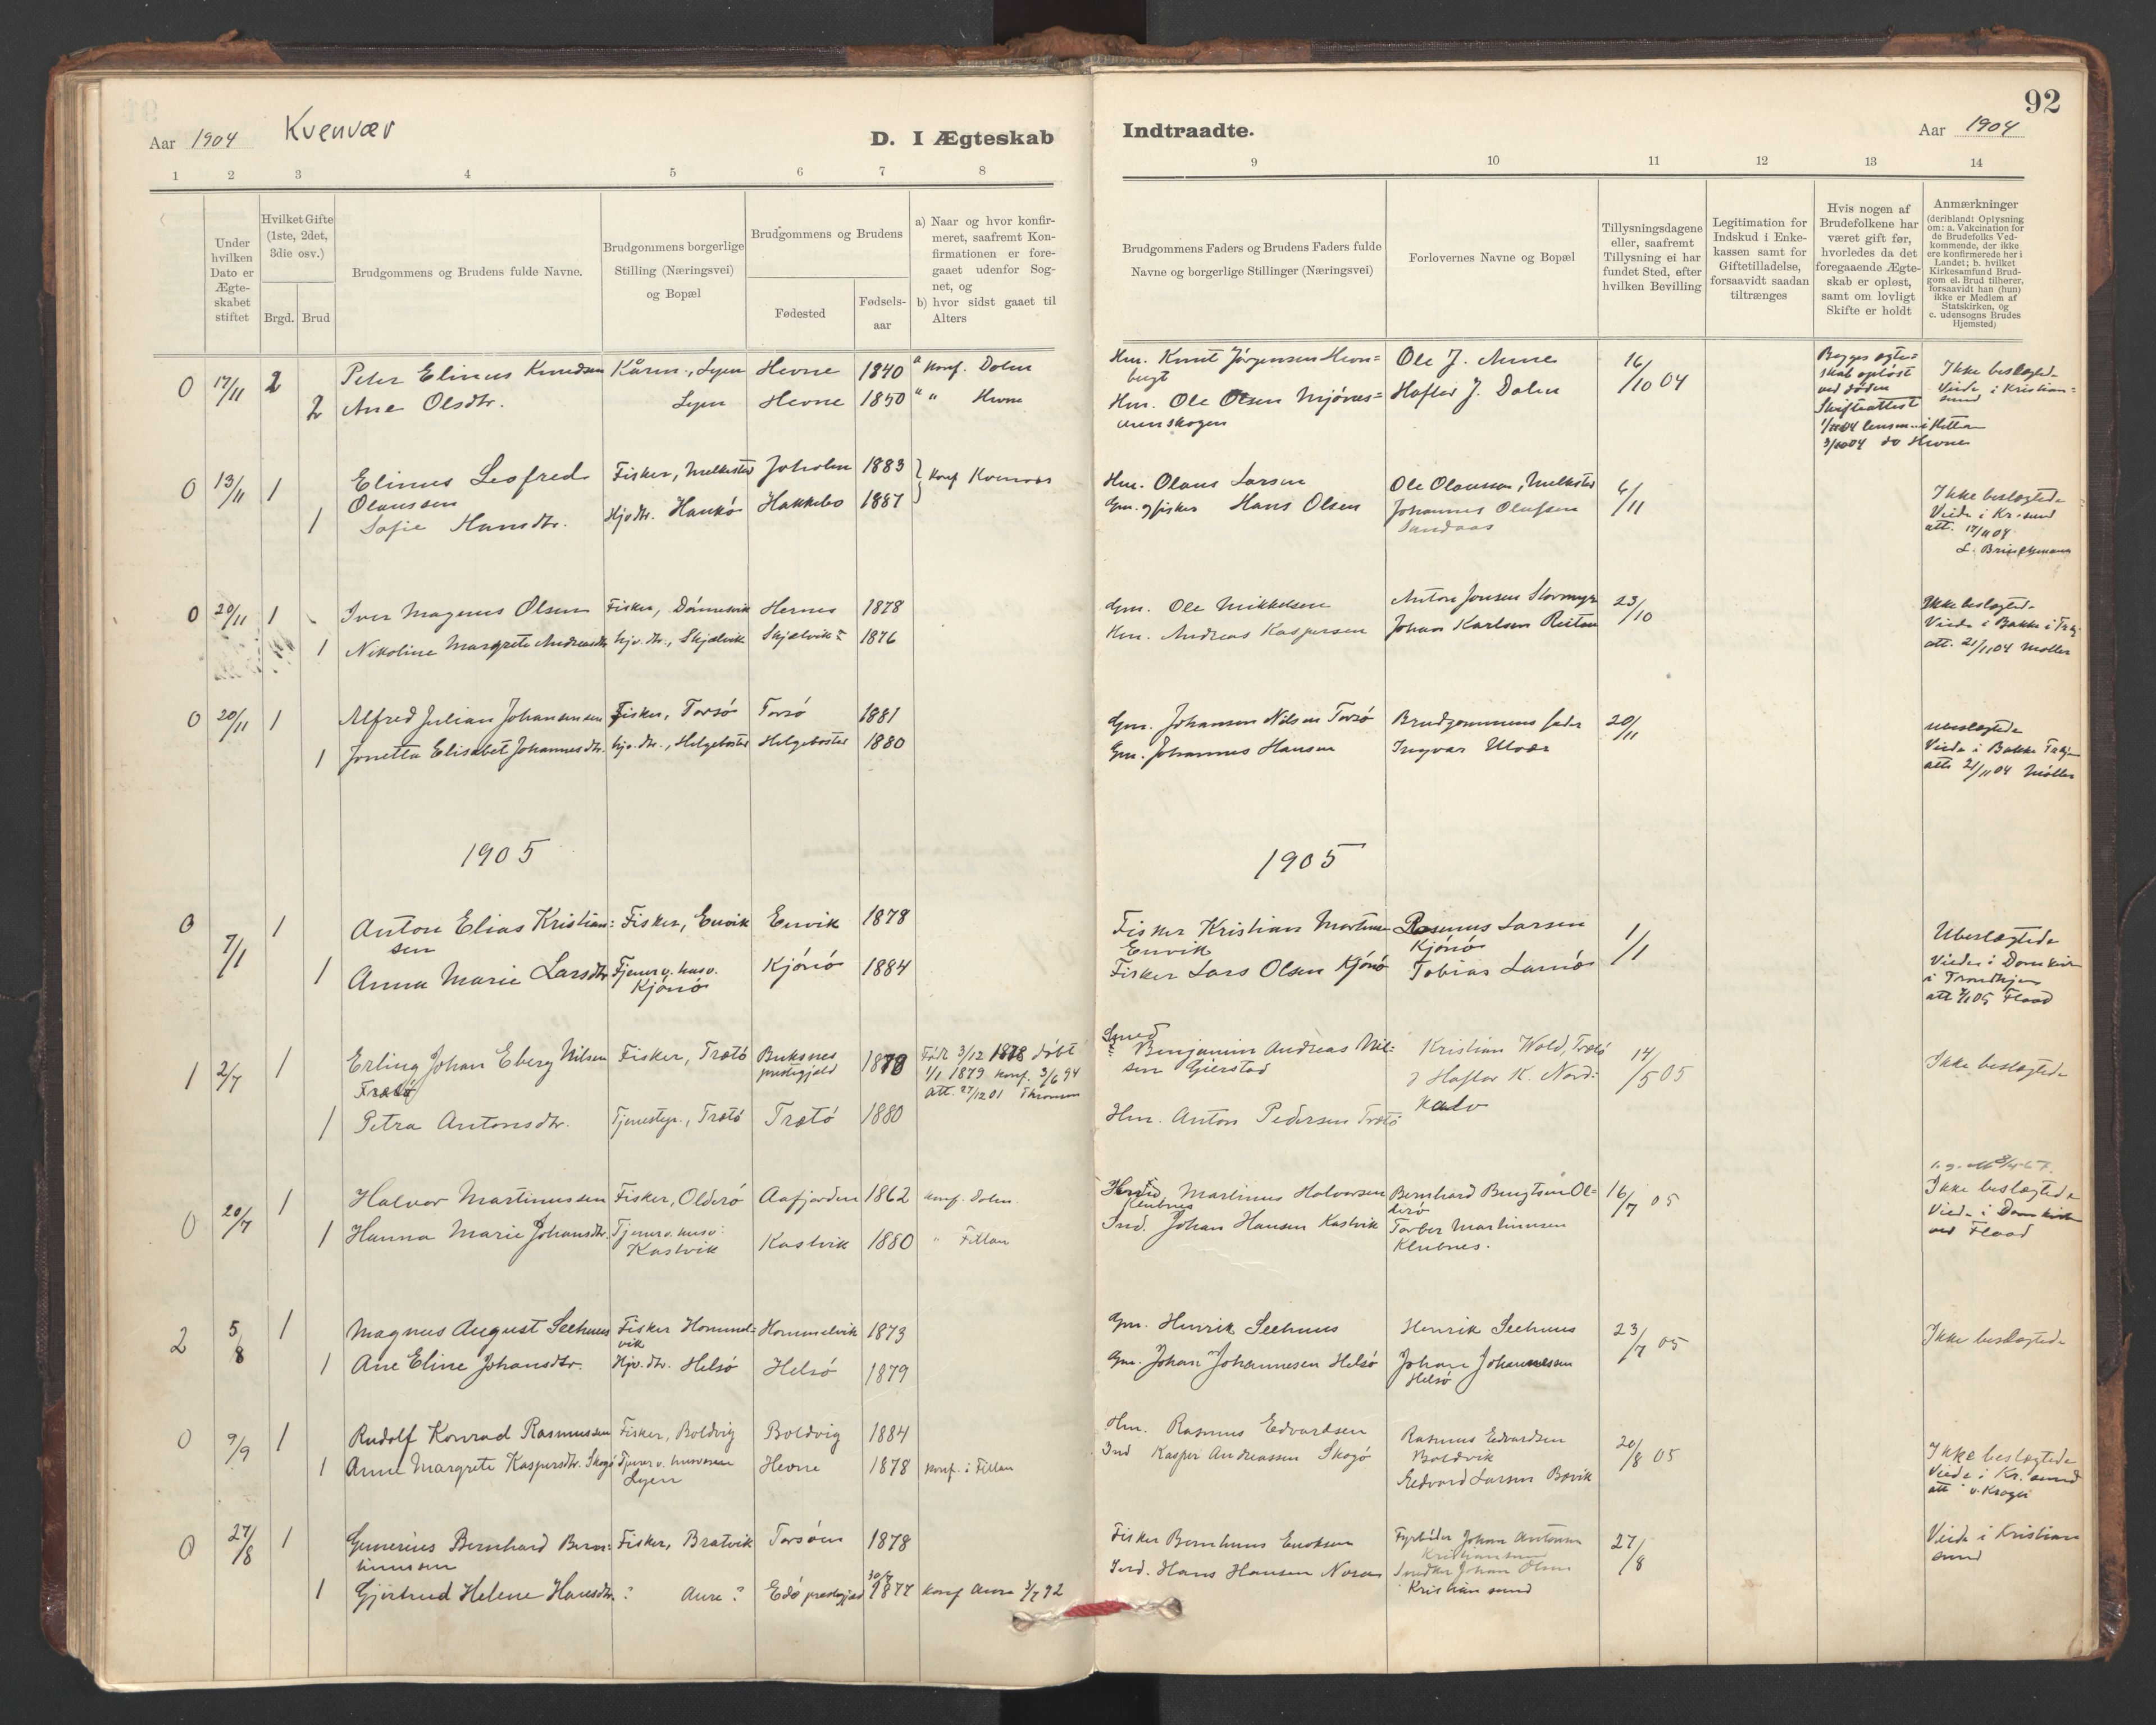 92
Aar 1904 Kvenvær D. I Ægteskab Indtraadte. Aar 1904
1 2 3 4 5 6 7 8 9 10 11 12 13 14
Under hvilken Dato er Ægte-skabet stiftet
Hvilket Gifte (1ste, 2det, 3die osv.)
Brgd. Brud
Brudgommens og Brudens fulde Navne.
Brudgommens borgerlige Stilling (Næringsvei) og Bopæl
Brudgommens og Brudens
Fødested
Fødsels-aar
a) Naar og hvor konfir-meret, saafremt Kon-firmationen er fore-gaaet udenfor Sog-net, og
b) hvor sidst gaaet til Alters
Brudgommens Faders og Brudens Faders fulde Navne og borgerlige Stillinger (Næringsvei)
Forlovernes Navne og Bopæl
Tillysningsdagene eller, saafremt Tillysning ei har fundet Sted, efter hvilken Bevilling
Legitimation for Indskud i Enke-kassen samt for Giftetilladelse, forsaavidt saadan tiltrænges
Hvis nogen af Brudefolkene har været gift før, hvorledes da det foregaaende Ægte-skab er opløst, samt om lovligt Skifte er holdt
Anmærkninger (deriblandt Oplysning om: a. Vakcination for de Brudefolks Ved-kommende, der ikke ere konfirmerede her i Landet; b. hvilket Kirkesamfund Brud-gom el. Brud tilhører, forsaavidt han (hun) ikke er Medlem af Statskirken, og c. udensogns Brudes Hjemsted)
0 17/11 2 Peter Elinus Knudsen Kårm., Lyen Hevne 1840 a konf. Dolm Hm. Knut Jørgensen Hevn=bugt Ole J. Aune 16/10 04 Begges ægte=skab opløst ved døden Skifteattest Ikke beslægtede Viede i Kristian=sund
2 Ane Olsdtr. Lyen Hevne 1850 " " Hevne Hm. Ole Olsen Haftor J. Dolm
0 13/11 1 Elinus Leofred Olaussen Fisker, Melkstad Joholm 1883 konf Kvenvær Hm. Olaus Larsen Ole Olaussen, Melkstad 6/11 Ikke beslægtede Viede i Kr.sund att. 17/11 04
1 Sofie Hansdtr. Hjvdtr. Haukö Hakkebo 1887 Gm. og fisker Hans Olsen Johannes Olufsen Sandaas L. Brinchmann
0 20/11 1 Iver Magnus Olsen Fisker, Dönnesvik Hernes 1878 Gm. Ole Mikkelsen Anton Jonsen Stormyr 23/10 Ikke beslægtede Viede i Bakke i Trhj.
1 Nekoline Margrete Andreasdtr. hjv.dtr., Skjælvik Skjælvik 1876 Hm. Andreas Kaspersen Johan Karlsen Reitan att. 21/11 04 Møller
0 20/11 1 Alfred Julian Johansensen Fisker, Torsö Torsö 1881 Gm. Johansen Nilsen Torsö Brudgommens fader 20/11 Ubeslægtede Viede i Bakke Trhj
1 Jonetta Elisabet Johannesdtr. hjv.dtr., Helgebostad Helgebostad 1880 Gm. Johannes Hansen Ingvar Ulvær att. 21/11 04 Møller
1905 1905
0 7/1 1 Anton Elias Kristian=sen Fisker, Envik Envik 1878 Fisker Kristian Martinsen Envik Rasmus Larsen Kjönö 1/1 Ubeslægtede Viede i Domkir i Trondhjem
1 Anna Marie Larsdtr Tjener v. husv. Kjönö Kjönö 1884 Fisker Lars Olsen Kjönö Tobias Larnös att 7/1 05 Flood
1 2/7 1 Erling Johan Eberg Nilsen Trætö Fisker, Trætö Buksnes prestegjeld 1878 Født 3/12 1878 døbt 1/1 1879 konf. 3/6 94 att. 27/12 01 Smed Benjamin Andreas Nil=sen Gierstad Kristian Wold, Trætö 14/5 05 Ikke beslægtede
1 Petra Antonsdtr. Tjenestep., Trætö Trætö 1880 Hm. Anton Pedersen Trætö & Haftor K. Nord=kalv
0 20/7 1 Halvor Martinussen Fisker, Olderö Aafjorden 1862 konf. Dolm. Martinus Halvorsen Klubnes Bernhard Bengtsen Ol=derö 16/7 05 Ikke beslægtede Viede i Domkirk
1 Hanna Marie Johansdtr. Tjener v. husv. Kastvik Kastvik 1880 " Fillan Ind. Johan Hansen Kastvik Torber Martinussen Klubnes. ved Flood
2 5/8 1 Magnus August Seehuus Fisker Hommel=vik Hommelvik 1873 Gm. Henrik Seehuus Henrik Seehuus 23/7 05 Ikke beslægtede
1 Ane Eline Johansdtr. Hjv.dtr. Helsö Helsö 1879 Gm. Johan Johannesen Helsö Johan Johannessen Helsö
0 9/9 1 Rudolf Konrad Rasmussen Fisker, Boldvig Boldvig 1884 Hm. Rasmus Edvardsen Rasmus Edvardsen Boldvik 20/8 05 Ikke beslægtede Viede i Kr.sund
1 Anne Margrete Kaspersdtr. Skogö Tjener v. husvæsen Lyen Hevne 1878 konf. i Fillan Ind Kasper Andreassen Skogö Edvard Larsen Bovik att
0 27/8 1 Gunerius Bernhard Bern=tinussen Fisker, Bratvik Torsöen 1878 Fisker Berntinus Enoksen Johan Antonsen Kristiansund 27/8 Viede i Kristian sund
1 Gjertrud Helene Hansdtr. ? Aure ? Edö prestegjeld 30/7 1877 konf Aure 3/7 92 Ind. Hans Hansen Snedker Johan Olsen Kristiansund